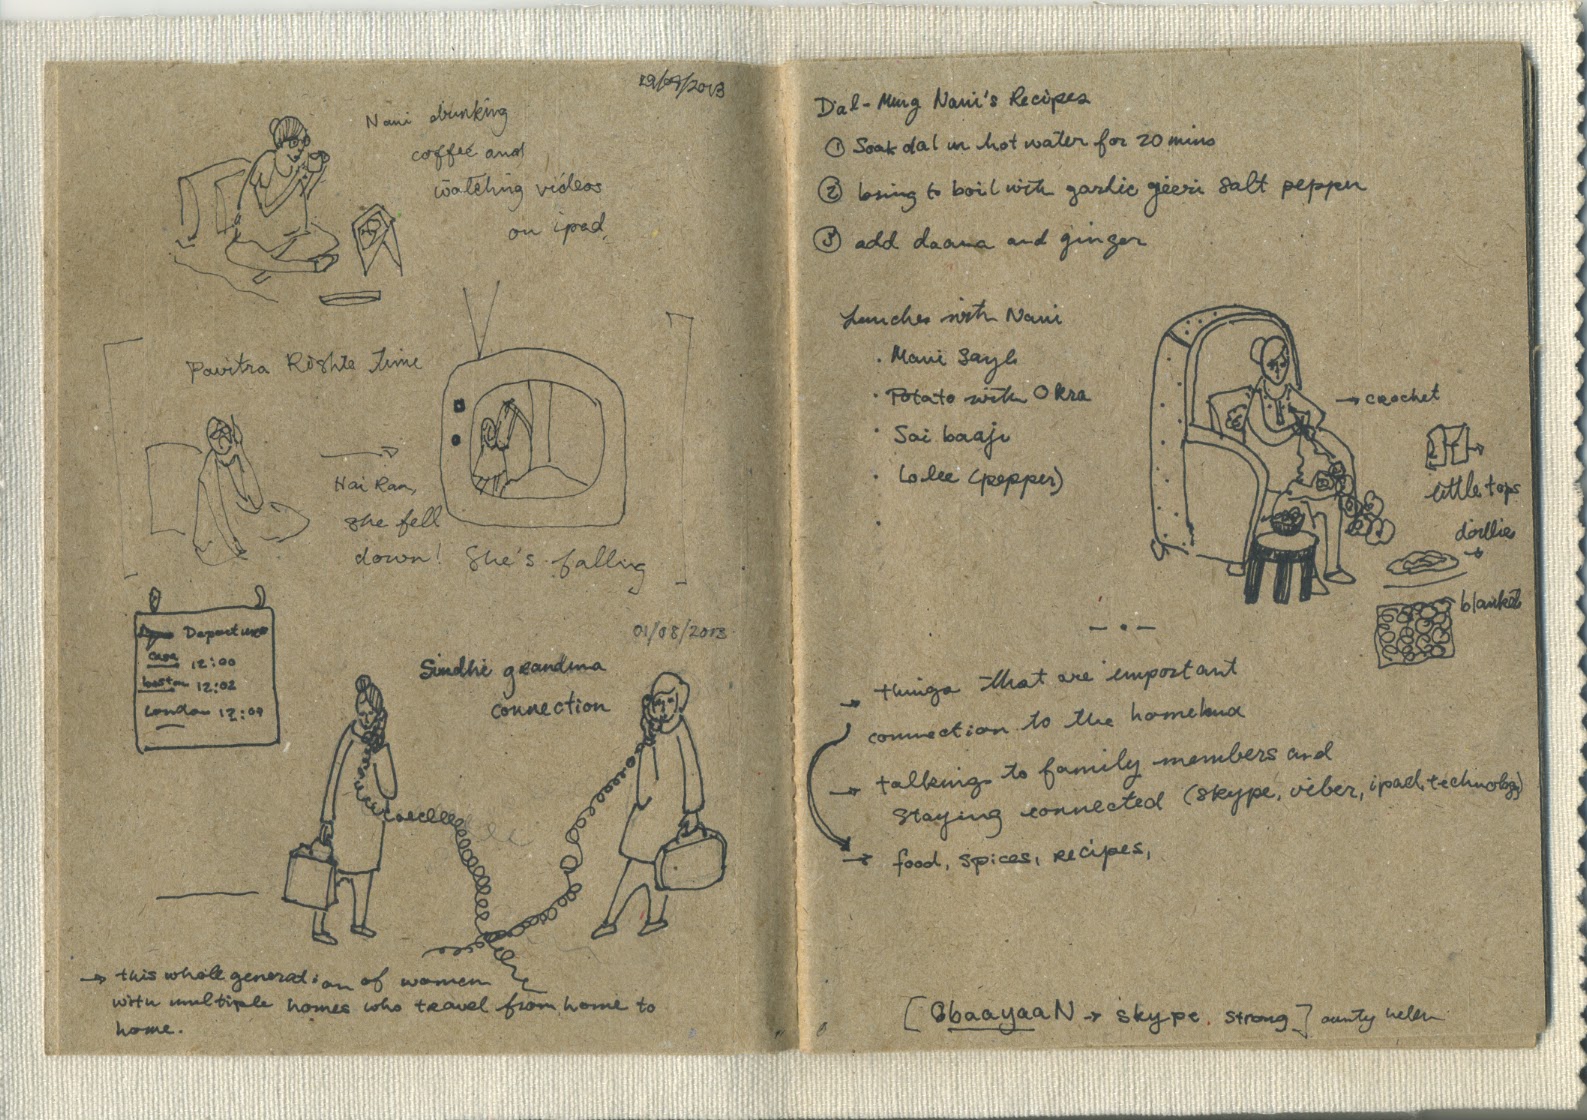 29/07/2013
Nani drinking
coffee and
watching videos
on ipad
Pavitra Rishte Time
Hai Ram,
she fell
down! She's falling
Departure
casa 12:00
boston 12:02
London 12:09
01/08/2013
Sindhi grandma
connection
→ this whole generation of women
with multiple homes who travel from home to
home.
Dal-Mung Nani's Recipes
① Soak dal in hot water for 20 mins
② bring to boil with garlic geeri salt pepper
③ add daana and ginger
Lunches with Nani
· Mani Sayl
· Potato with Okra
· Sai baaji
· Lolee (pepper)
·
→ crochet
little tops
doilies
blanket
→ things that are important
connection to the homeland
→ talking to family members and
staying connected (skype, viber, ipad, technology)
→ food, spices, recipes,
[ObaayaaN → skype. strong] aunty helen